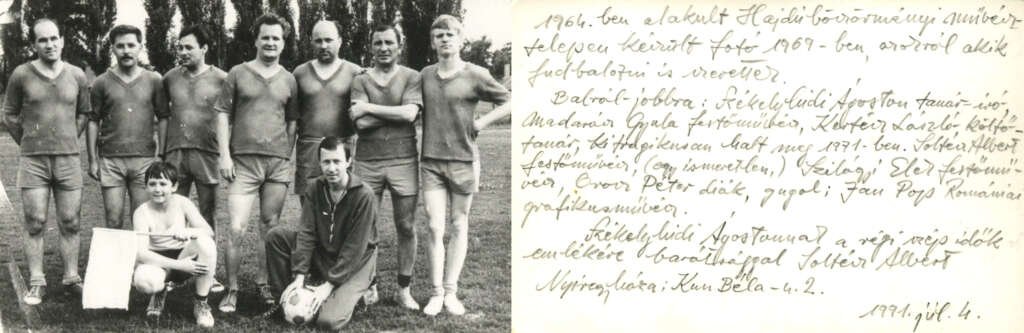 1964.-ben alakult Hajdúböszörményi művész
telepen készült fotó 1969-ben, azokról akik
fudbalozni is szerettek.
Balról-jobbra: Székelyhidi Ágoston tanár-író,
Madarász Gyula festőművész, Kertész László költő-
tanár, ki tragikusan halt meg 1971-ben. Soltész Albert
festőművész, (egy ismeretlen,) Szilágyi Elek festőmű-
vész, Orosz Péter diák, gugol: Jan Pop Romániai
grafikusművész.
Székelyhidi Ágostonnak a régi szép idők
emlékére barátsággal Soltész Albert
Nyíregyháza: Kun Béla-u. 2.
1991. júl. 4.